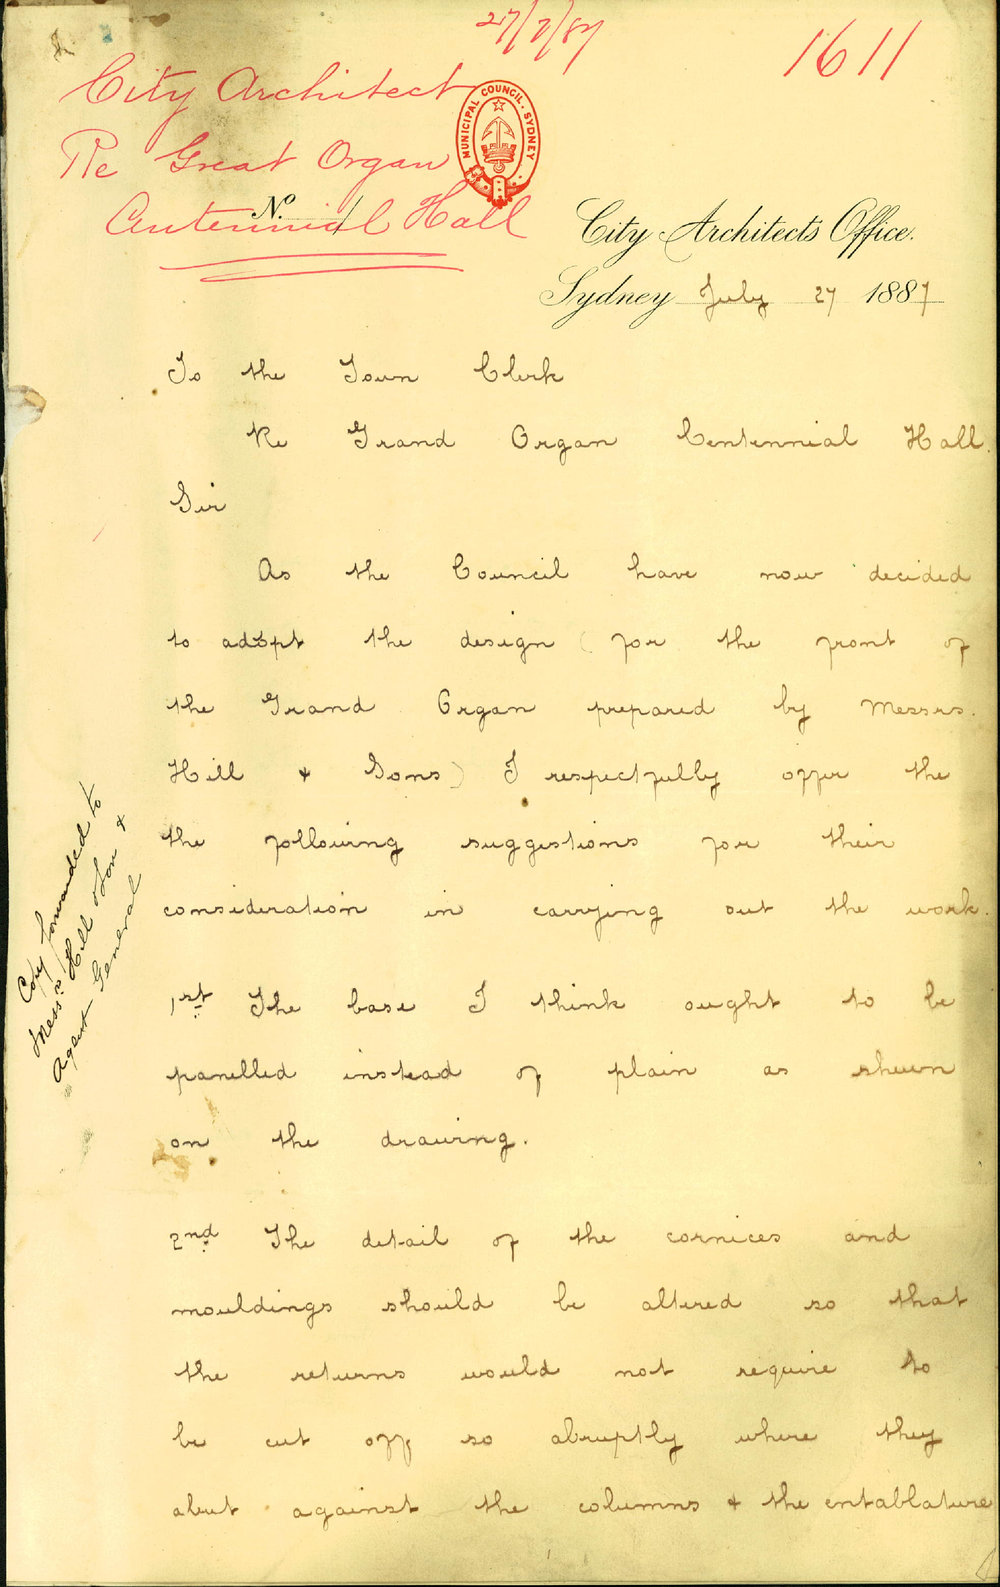 27/7/87
1611
City Architect
Re Great Organ
Centennial Hall
MUNICIPAL COUNCIL. SYDNEY
No.
City Architects Office.
Sydney July 27 1887
To the Town Clerk
Re Grand Organ Centennial Hall.
Sir
As the Council have now decided
to adopt the design (for the front of
the Grand Organ prepared by Messrs.
Hill & Sons) I respectfully offer the
the following suggestions for their
consideration in carrying out the work.
1st The base I think ought to be
panelled instead of plain as shewn
on the drawing.
2nd The detail of the cornices and
mouldings should be altered so that
the returns would not require to
be cut off so abruptly where they
abut against the columns & the entablature
Copy forwarded to
Messrs Hill & Son &
Agent General